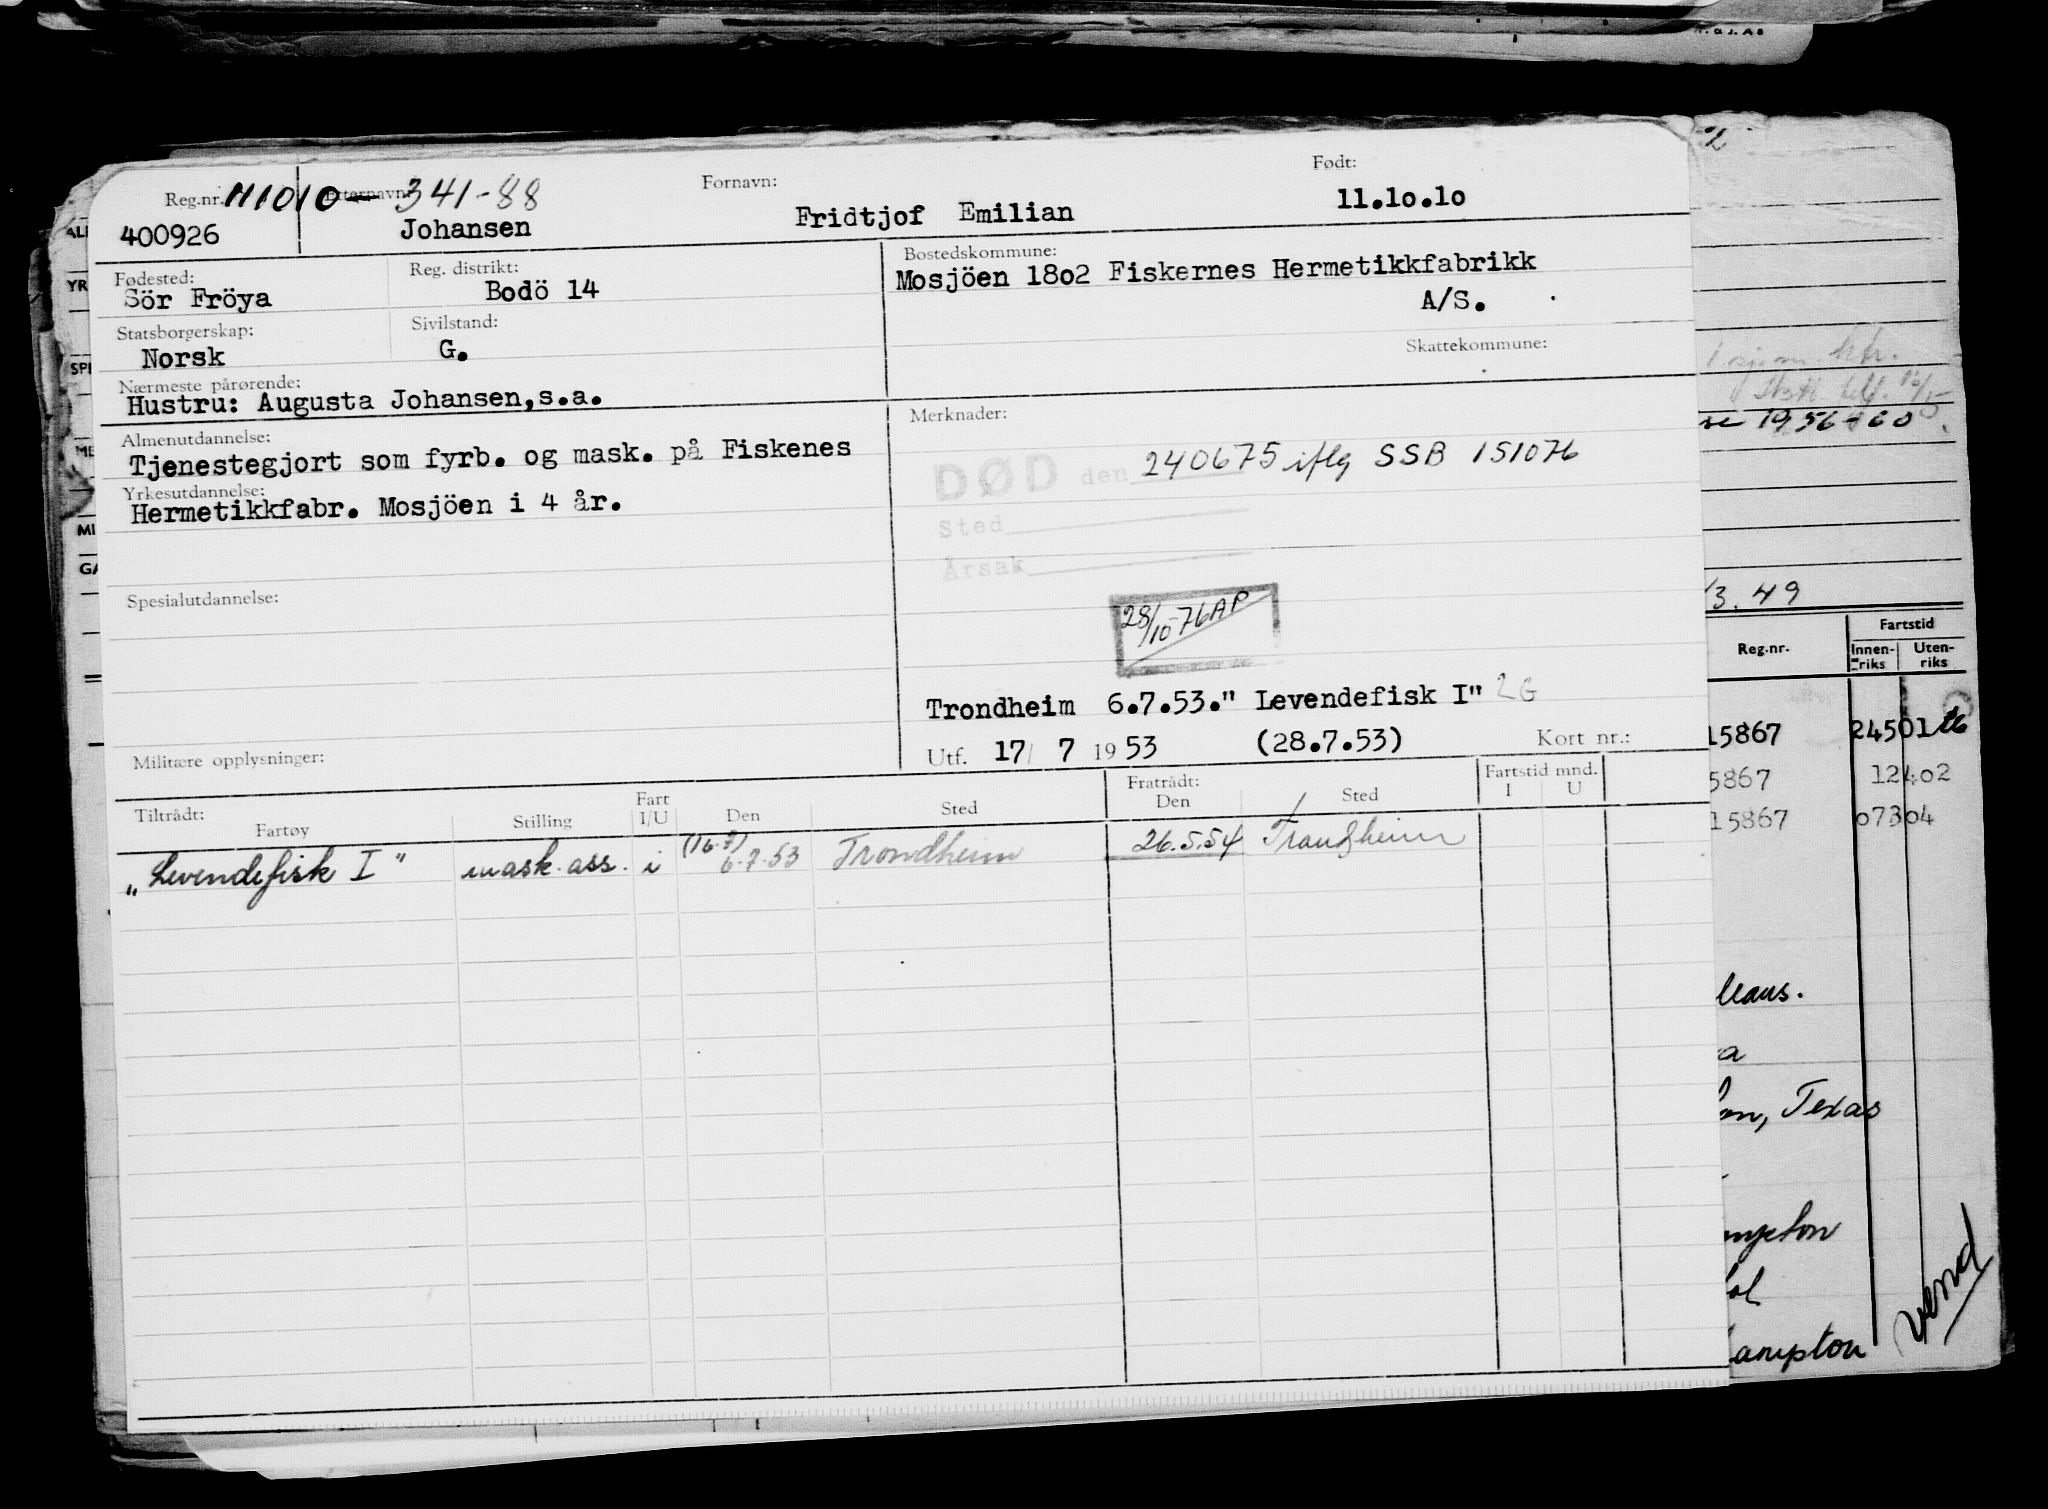 Reg.nr. 111010 Etternavn: 341-88 Fornavn: Født:
400926 Johansen Fridtjof Emilian 11.10.10
Fødested: Reg. distrikt: Bostedskommune:
Sör Fröya Bodö 14 Mosjöen 1802 Fiskernes Hermetikkfabrikk
A/S.
Statsborgerskap: Sivilstand:
Norsk G.
Skattekommune:
Nærmeste pårørende:
Hustru: Augusta Johansen,s.a.
Almenutdannelse: Merknader:
Tjenestegjort som fyrb. og mask. på Fiskenes
Yrkesutdannelse:
Hermetikkfabr. Mosjöen i 4 år.
DØD den 240675 iflg SSB 151076
Sted
Årsak
Spesialutdannelse:
28/10-76 AP
Trondheim 6.7.53." Levendefisk I" 2G
Militære opplysninger:
Utf. 17/ 7 1953 (28.7.53) Kort nr.:
Tiltrådt: Fratrådt: Fartstid mnd.
Fartøy Stilling Fart I/U Den Sted Den Sted I U
„Levendefisk I" mask. ass. i (16.7) 6.7.53 Trondheim 26.5.54 Trondheim
1956-60
/3.49
Reg.nr. Fartstid
Innen-riks Uten-riks
15867 24501
5867 12402
15867 07304
Texas
vend